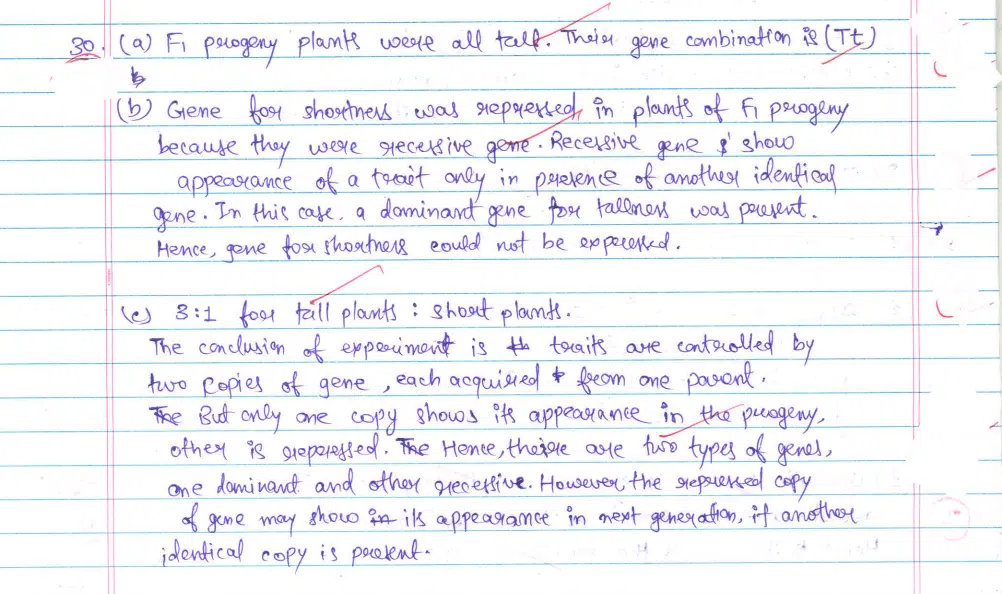 30. (a) F1 progeny plants were all tall. Their gene combination is (Tt)
(b) Gene for shortness was repressed in plants of F1 progeny
because they were recessive gene. Recessive gene show
appearance of a trait only in presence of another identical
gene. In this case, a dominant gene for tallness was present.
Hence, gene for shortness could not be expressed.
(c) 3:1 for tall plants : short plants.
The conclusion of experiment is traits are controlled by
two copies of gene, each acquired from one parent.
The But only one copy shows its appearance in the progeny,
other is repressed. The Hence, there are two types of genes,
one dominant and other recessive. However the repressed copy
of gene may show in its appearance in next generation, if another
identical copy is present.